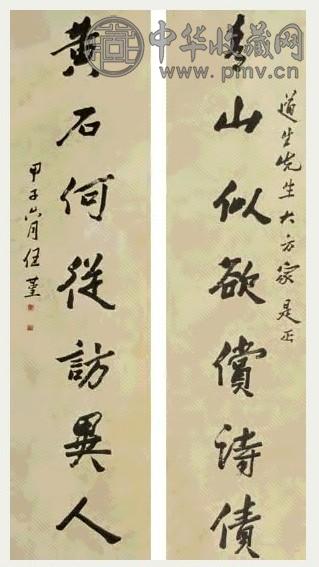 中华收藏网
www.pmv.cn
道生先生大方家是正
青山似欲償詩債
黄石何從訪異人
甲子六月任堇